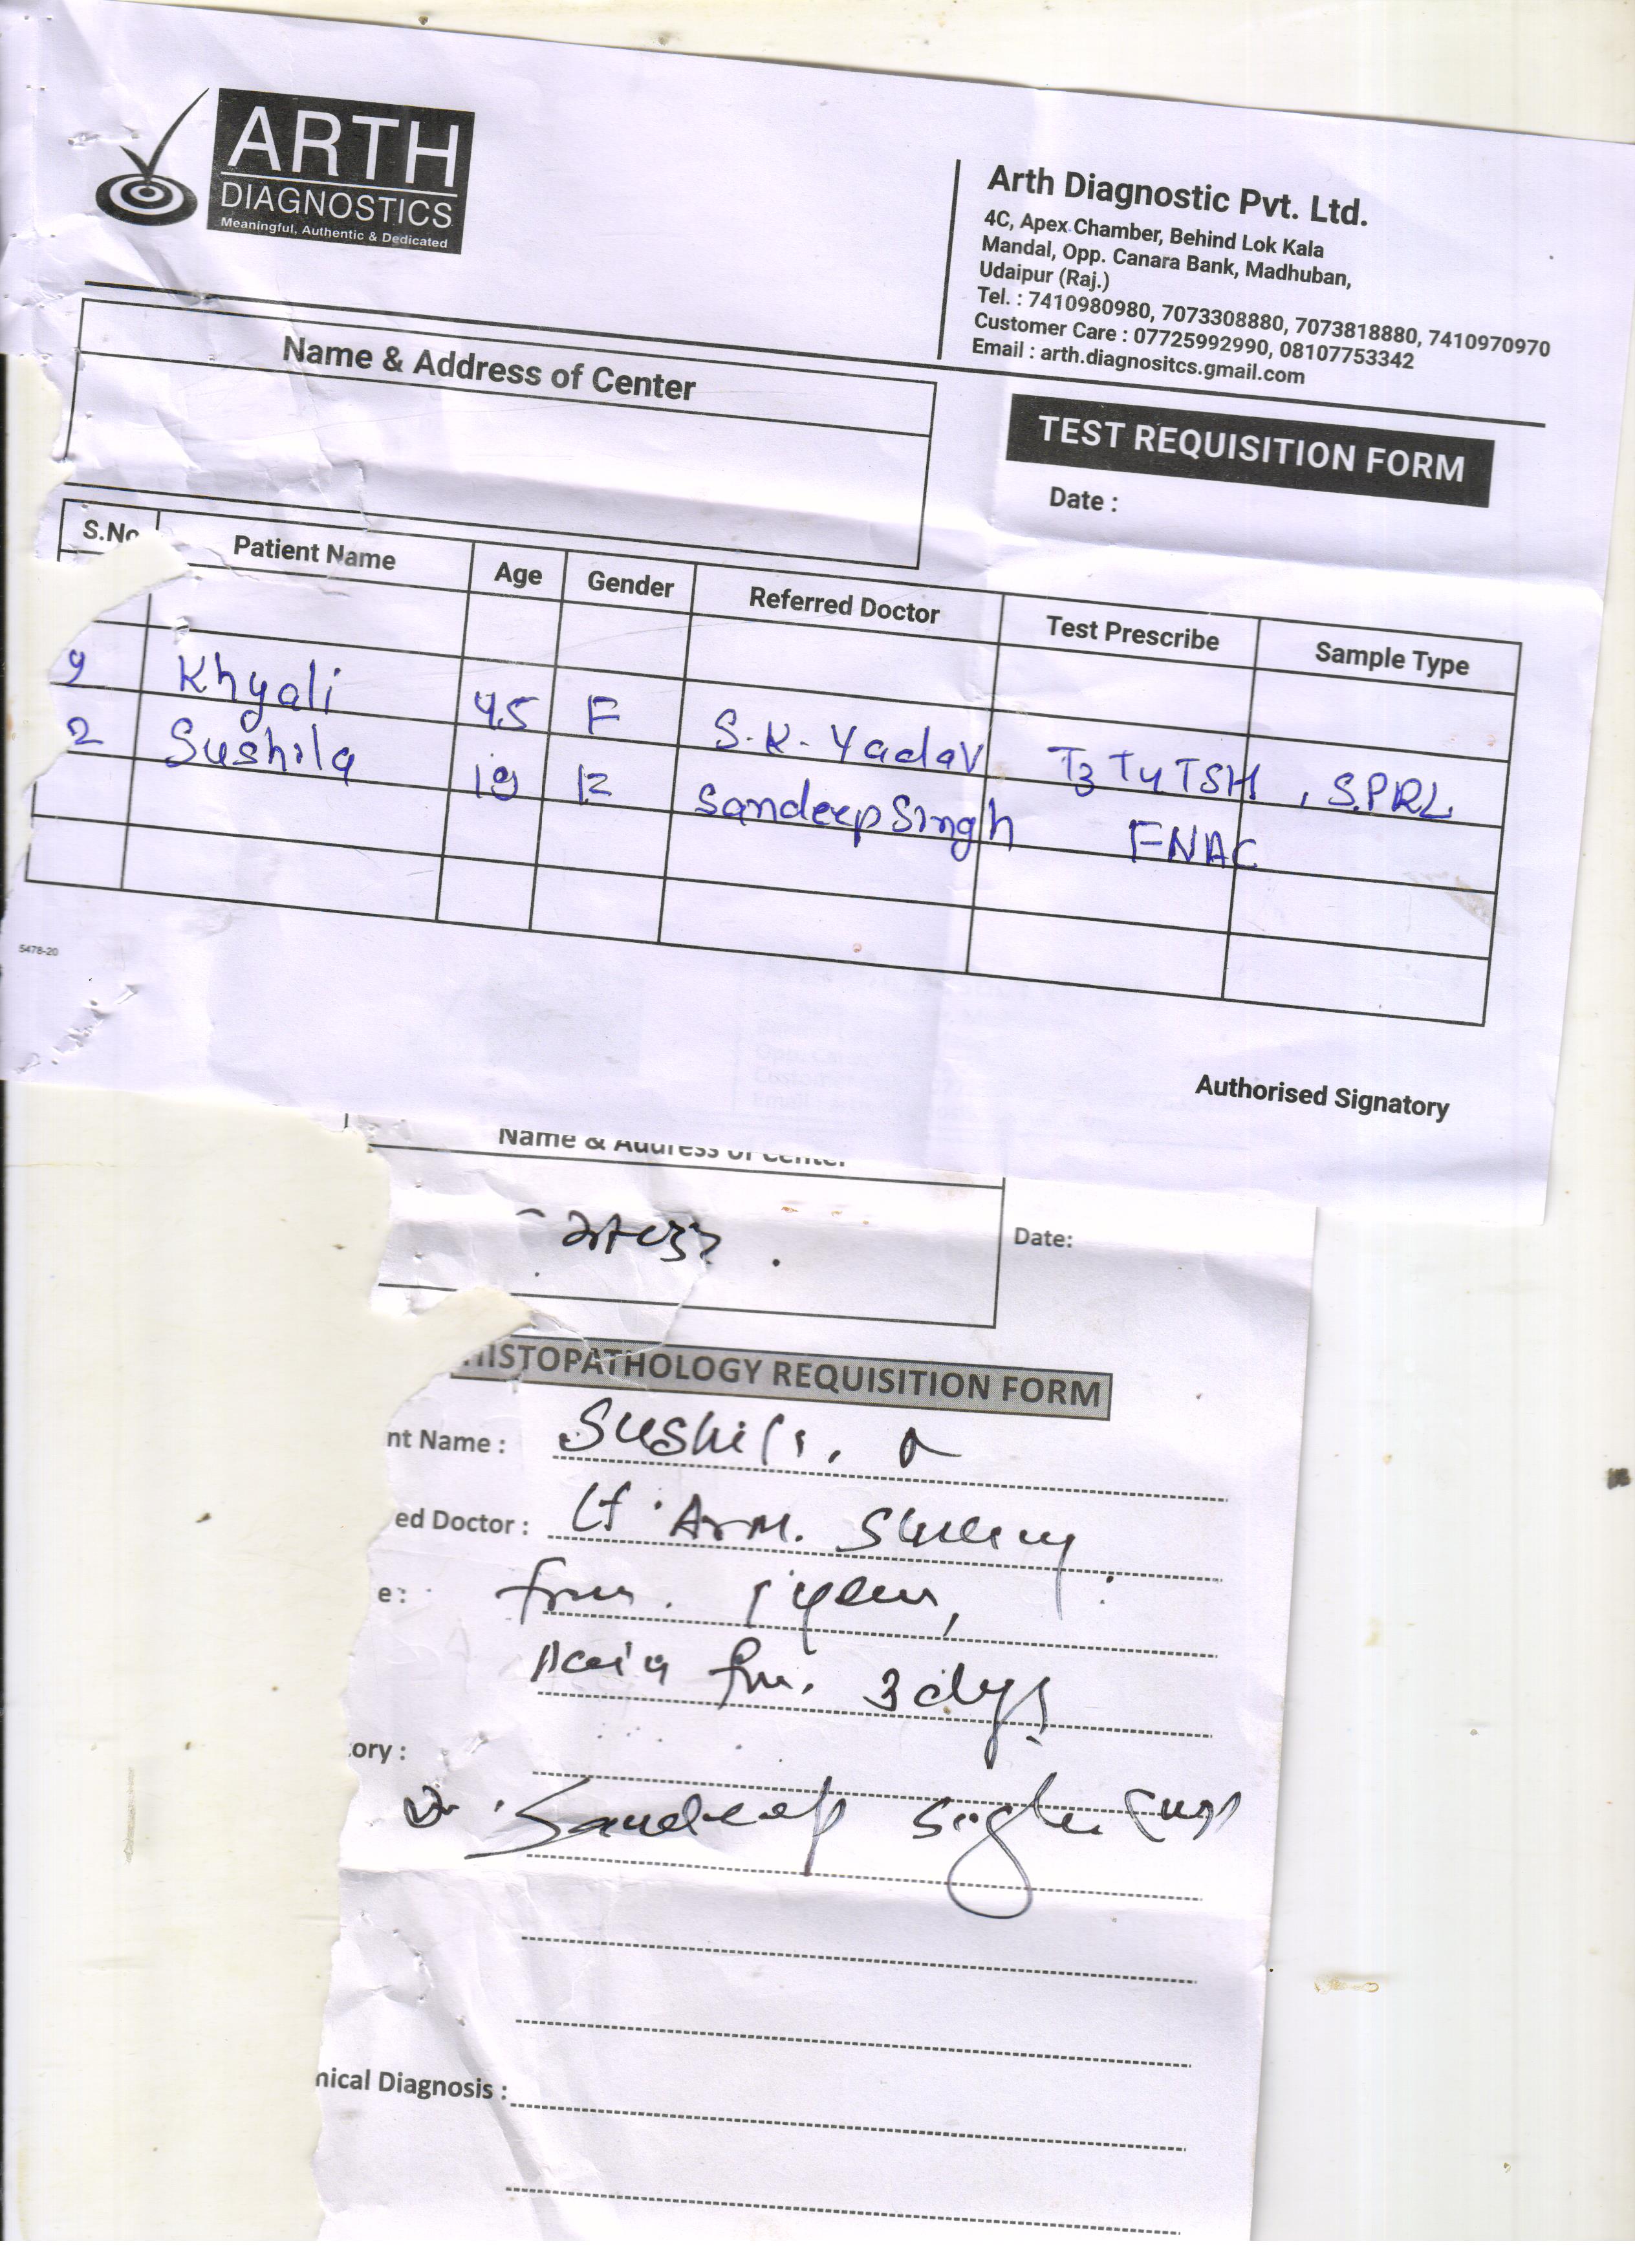 ARTH
DIAGNOSTICS
Meaningful, Authentic & Dedicated
Arth Diagnostic Pvt. Ltd.
4C, Apex Chamber, Behind Lok Kala
Mandal, Opp. Canara Bank, Madhuban,
Udaipur (Raj.)
Tel. : 7410980980, 7073308880, 7073818880, 7410970970
Customer Care : 07725992990, 08107753342
Email : arth.diagnositcs.gmail.com
Name & Address of Center
TEST REQUISITION FORM
Date :
S.No Patient Name Age Gender Referred Doctor Test Prescribe Sample Type
Khyali 45 F S.K. Yadav T3 T4 TSH, S.PRL
2 Sushila 19 F Sandeep Singh FNAC
5478-20
Authorised Signatory
Name & Address of Center
Date:
HISTOPATHOLOGY REQUISITION FORM
nt Name : Sushila
ed Doctor : Lt Arm. Swelling
e : from 1 year,
Pain from 3 days
ory :
Dr. Sandeep Singh
nical Diagnosis :